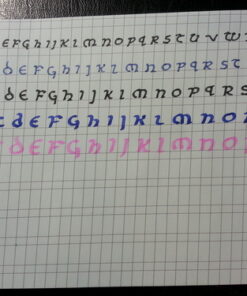 E F G h I J K L M N O P Q R S T U V W
d E F G h I J K L m n o p q R S T
d E F G h I J K L m n o p q R S
d E F G h I J K L m n o
d E F G h I J K L m n o